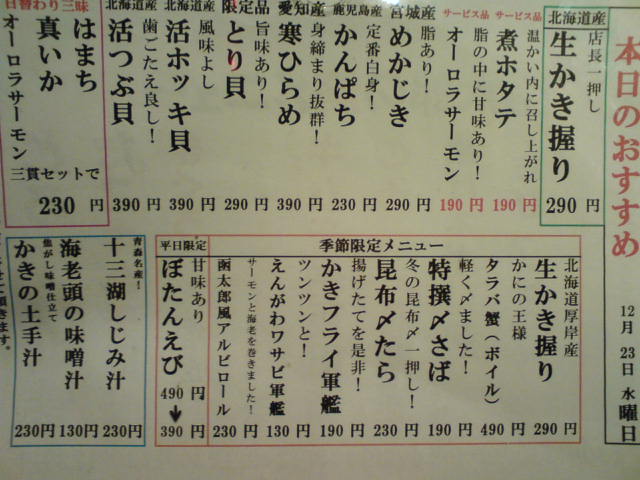 本日のおすすめ
12月23日 水曜日
北海道産
店長一押し
生かき握り
290円
サービス品
温かい内に召し上がれ
煮ホタテ
190円
サービス品
脂の中に甘味あり!
オーロラサーモン
190円
宮城産
脂あり!
めかじき
290円
鹿児島産
定番白身!
かんぱち
230円
愛知産
身締まり抜群!
寒ひらめ
390円
限定品
旨味あり!
とり貝
290円
北海道産
風味よし
活ホッキ貝
390円
北海道産
歯ごたえ良し!
活つぶ貝
390円
日替わり三昧
はまち
真いか
オーロラサーモン
三貫セットで
230円
季節限定メニュー
北海道厚岸産
生かき握り
290円
かにの王様
タラバ蟹(ボイル)
490円
軽く〆ました!
特撰〆さば
190円
冬の昆布〆一押し!
昆布〆たら
230円
揚げたてを是非!
かきフライ軍艦
190円
ツンツンと!
えんがわワサビ軍艦
130円
サーモンと海老を巻きました!
函太郎風アルビロール
230円
平日限定
甘味あり
ぼたんえび
490円
↓
390円
青森名産!
十三湖しじみ汁
230円
海老頭の味噌汁
130円
焦がし味噌仕立て
かきの土手汁
230円
ます。